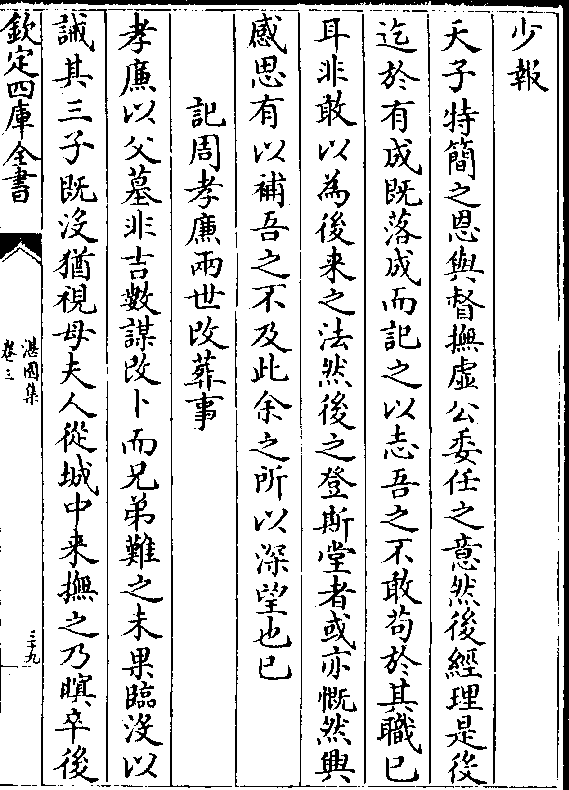 少報
天子特簡之恩與督撫虛公委任之意然後經理是役
迄於有成既落成而記之以志吾之不敢苟於其職已
耳非敢以為後来之法然後之登斯堂者或亦慨然興
感思有以補吾之不及此余之所以深望也已
記周孝廉兩世改葬事
孝廉以父墓非吉數謀改卜而兄弟難之未果臨沒以
誡其三子既沒猶視母夫人從城中来撫之乃瞑卒後
欽定四庫全書
湛園集
卷三
三十九